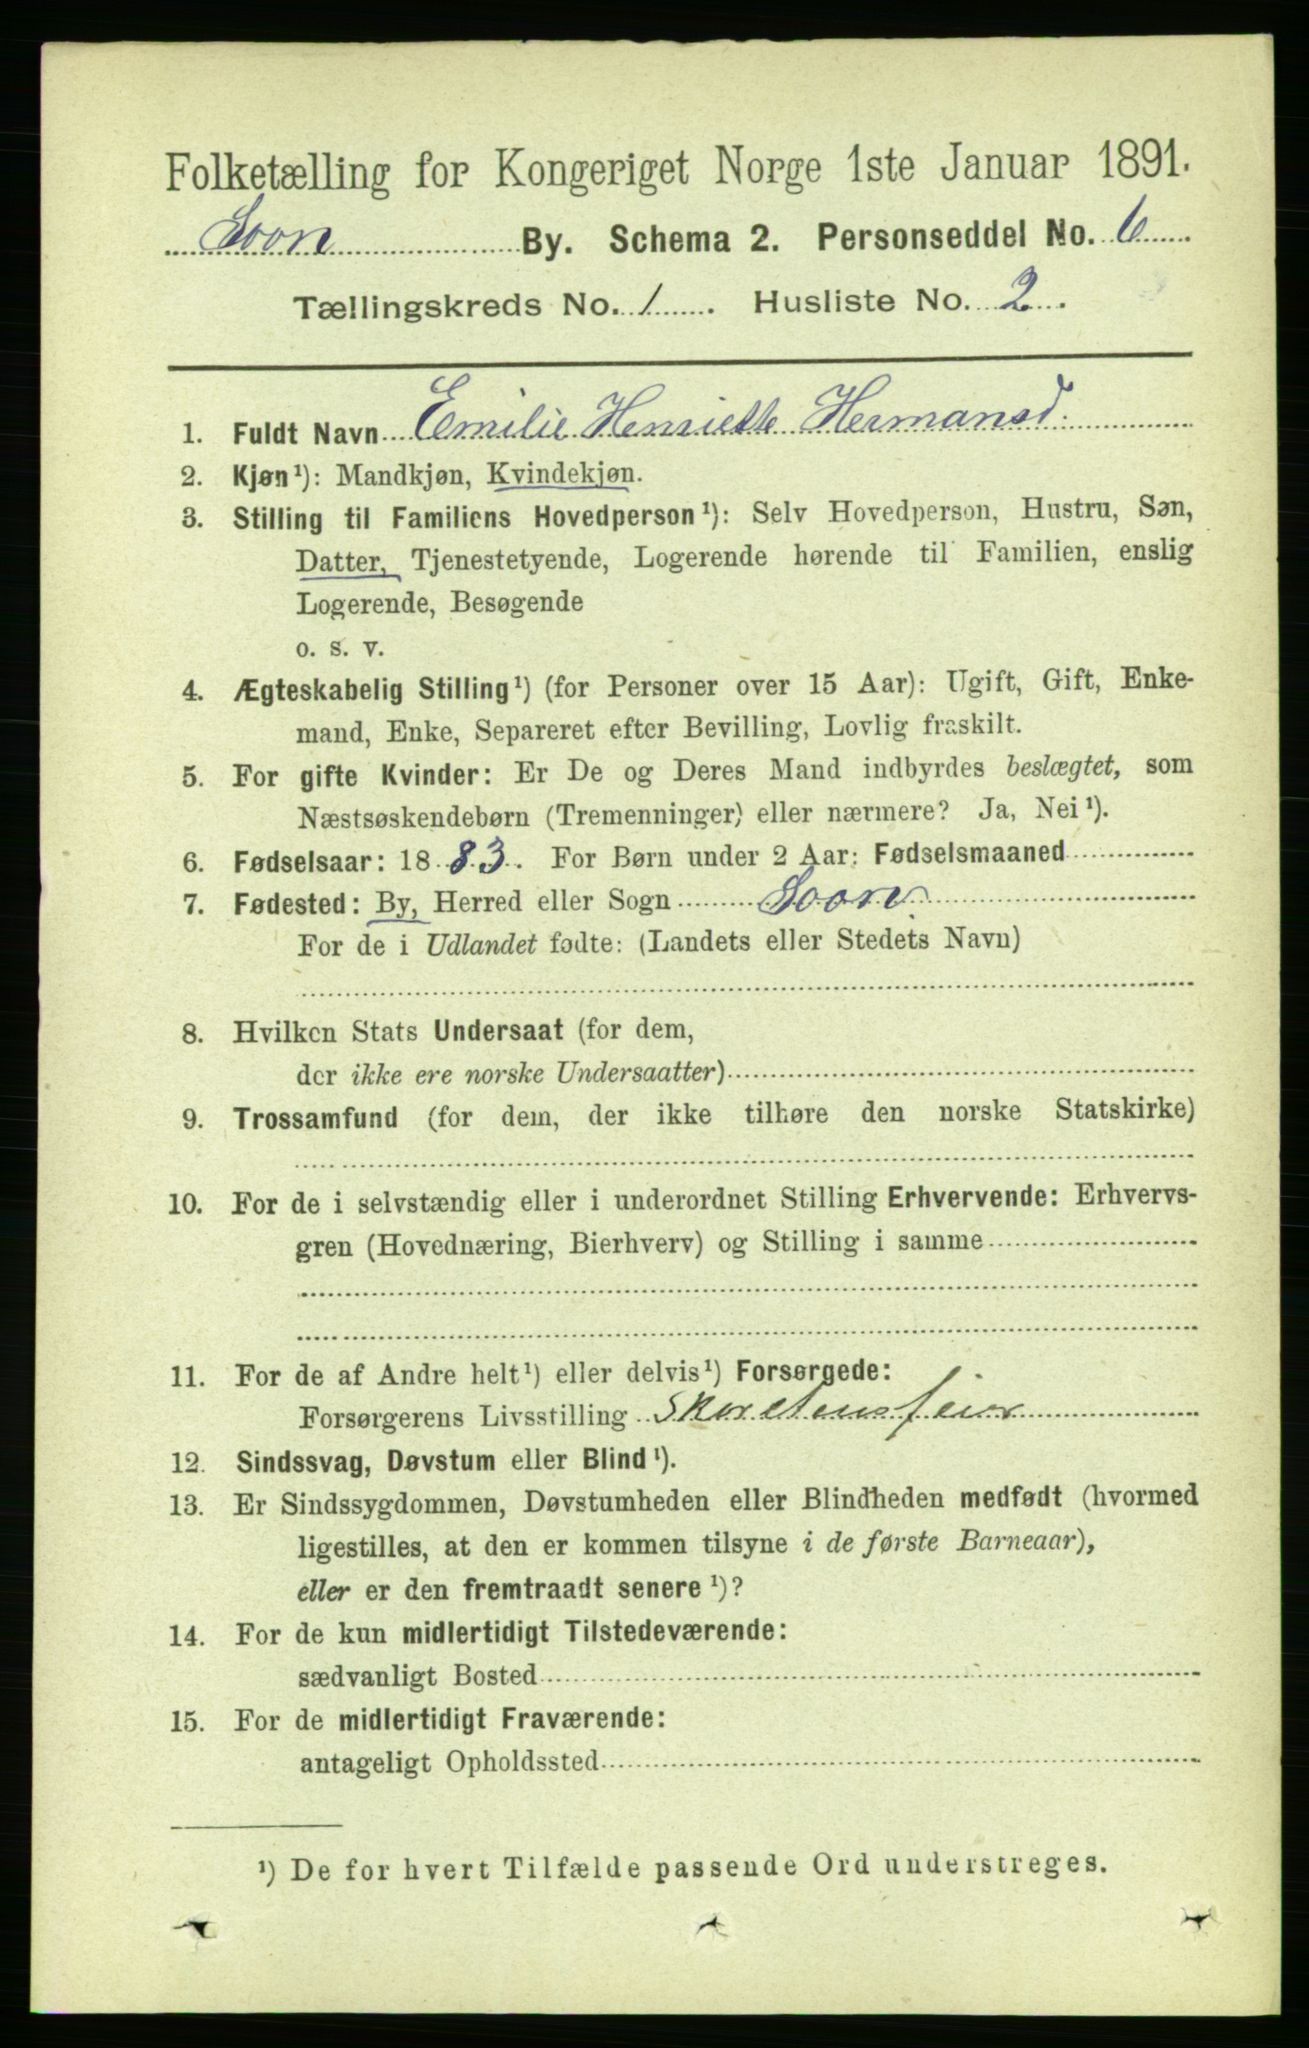 Folketælling for Kongeriget Norge 1ste Januar 1891.
Soon By. Schema 2. Personseddel No. 6
Tællingskreds No. 1. Husliste No. 2.
1. Fuldt Navn Emilie Henriette Hermansd.
2. Kjøn ¹): Mandkjøn, Kvindekjøn.
3. Stilling til Familiens Hovedperson ¹): Selv Hovedperson, Hustru, Søn,
Datter, Tjenestetyende, Logerende hørende til Familien, enslig
Logerende, Besøgende
o. s. v.
4. Ægteskabelig Stilling ¹) (for Personer over 15 Aar): Ugift, Gift, Enke-
mand, Enke, Separeret efter Bevilling, Lovlig fraskilt.
5. For gifte Kvinder: Er De og Deres Mand indbyrdes beslægtet, som
Næstsøskendebørn (Tremenninger) eller nærmere? Ja, Nei ¹).
6. Fødselsaar: 1883. For Børn under 2 Aar: Fødselsmaaned
7. Fødested: By, Herred eller Sogn Soon
For de i Udlandet fødte: (Landets eller Stedets Navn)
8. Hvilken Stats Undersaat (for dem,
der ikke ere norske Undersaatter)
9. Trossamfund (for dem, der ikke tilhøre den norske Statskirke)
10. For de i selvstændig eller i underordnet Stilling Erhvervende: Erhvervs-
gren (Hovednæring, Bierhverv) og Stilling i samme
11. For de af Andre helt ¹) eller delvis ¹) Forsørgede:
Forsørgerens Livsstilling Skorstensfeier
12. Sindssvag, Døvstum eller Blind ¹).
13. Er Sindssygdommen, Døvstumheden eller Blindheden medfødt (hvormed
ligestilles, at den er kommen tilsyne i de første Barneaar),
eller er den fremtraadt senere ¹)?
14. For de kun midlertidigt Tilstedeværende:
sædvanligt Bosted
15. For de midlertidigt Fraværende:
antageligt Opholdssted
¹) De for hvert Tilfælde passende Ord understreges.